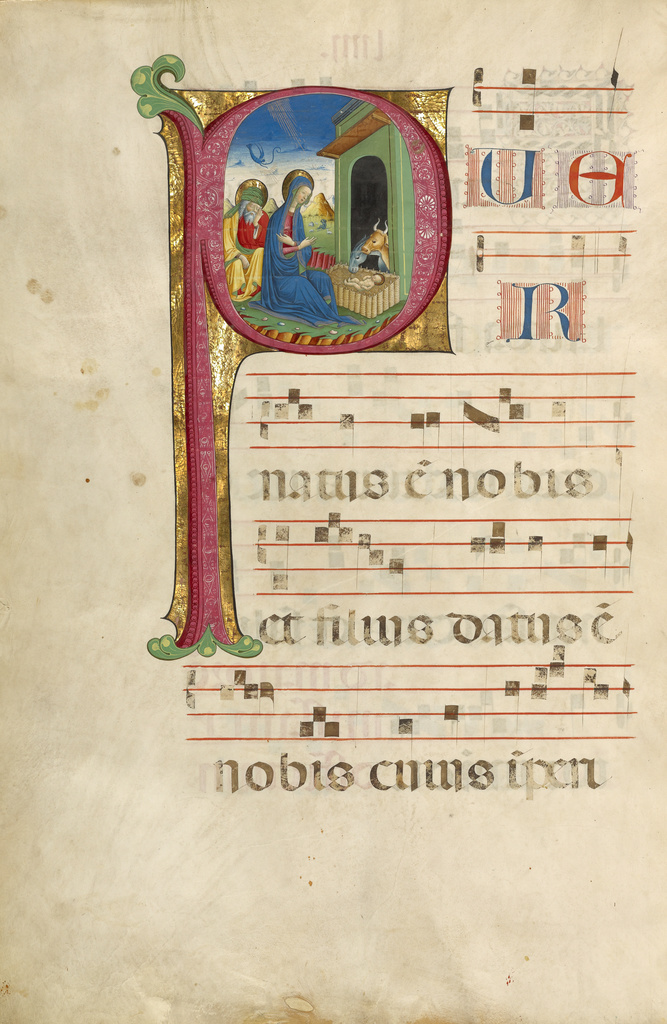 PUE
R
natus ē nobis
et filius datus ē
nobis cuius īperi